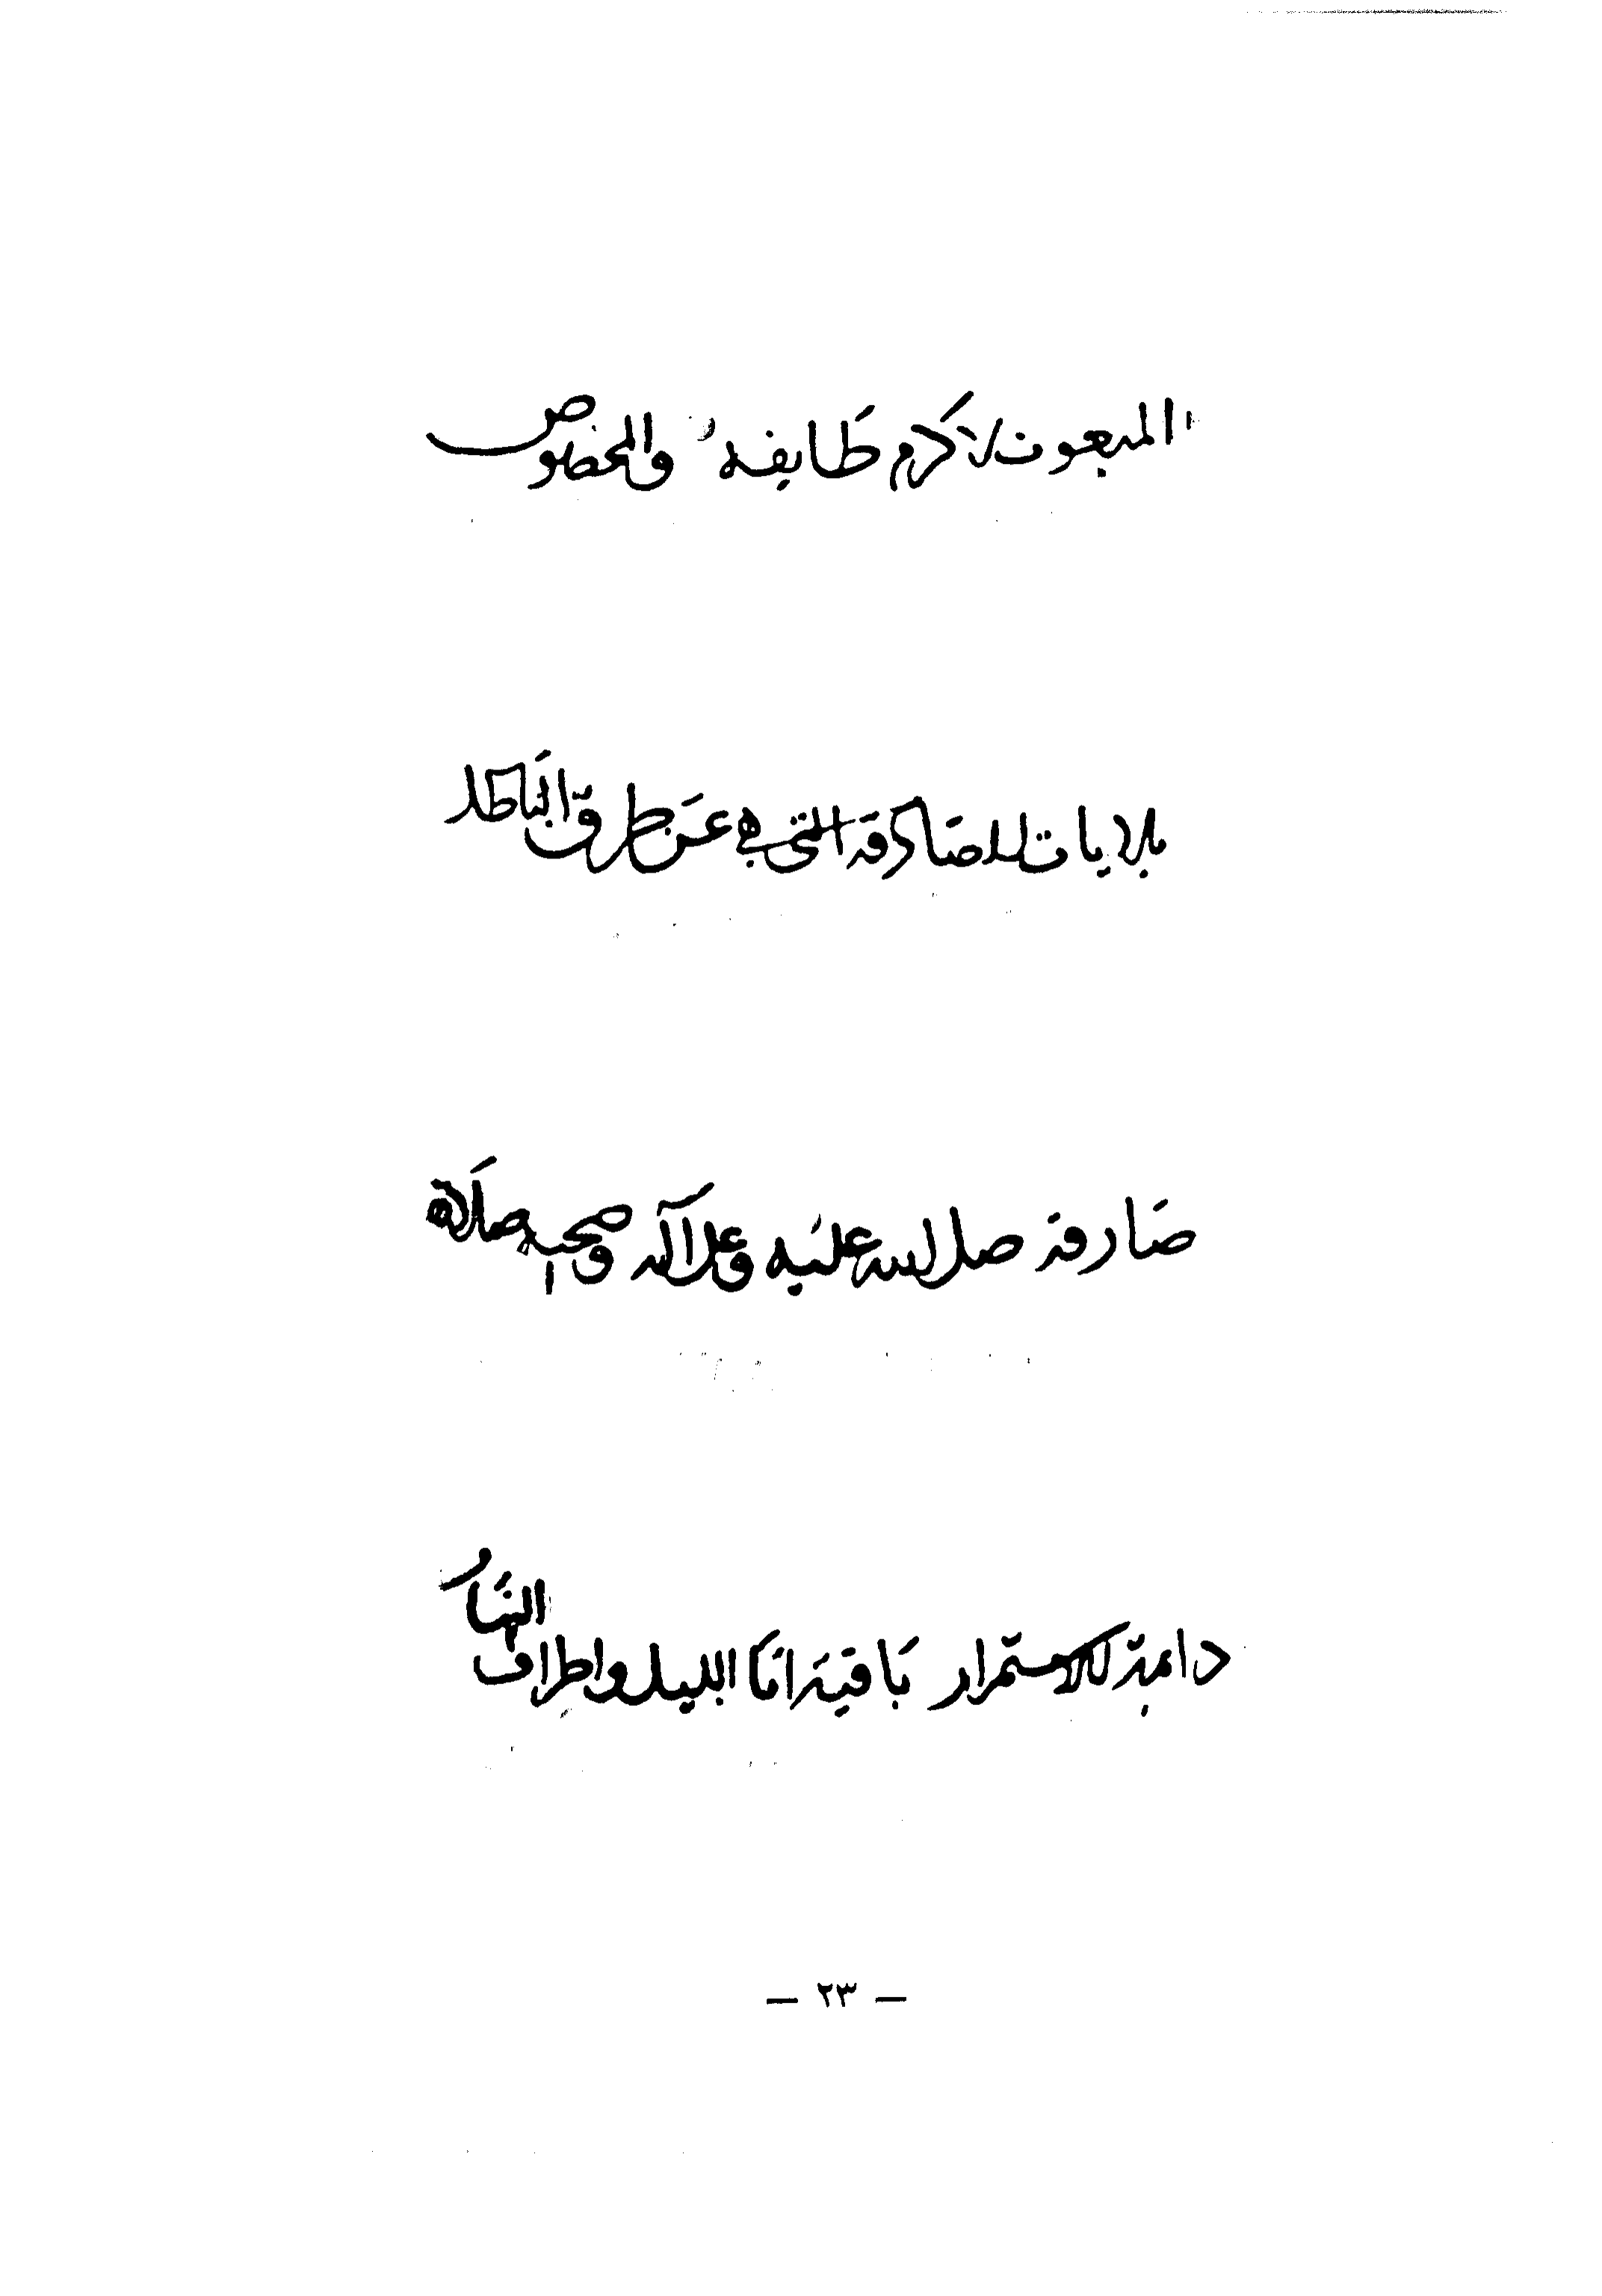 المبعوث لاكرم طايفه والمخصوص
بالايات الصادقة التي هي عن طرق الباطل
صارفة صلى الله عليه وعلى آله وصحبه صلاة
دائمة الاستمرار باقية انا الليل واطراف النهار
— ٢٣ —